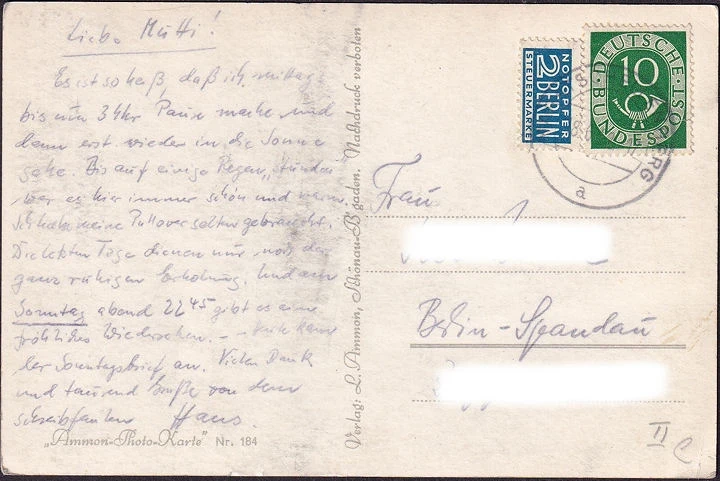 Liebe Mutti!
Es ist so heiß, daß ich mittag
bis um 3 Uhr Pause mache und
dann erst wieder in die Sonne
gehe. Bis auf einige Regen„stunden“
war es hier immer schön und warm.
Ich habe meine Pullover selten gebraucht.
Die letzten Tage dienen nur noch der
ganz ruhigen Erholung. Und am
Sonntag abend 22 45 gibt es ein
fröhliches Wiedersehen. — Heute kam
der Sonntagsbrief an. Vielen Dank
und tausend Grüße von dem
schreibfaulen Hans.
„Ammon-Photo-Karte“ Nr. 184
Verlag: L. Ammon, Schönau-B'gaden. Nachdruck verboten
NOTOPFER
2 BERLIN
STEUERMARKE
DEUTSCHE
10
BUNDESPOST
a
Frau
Berlin-Spandau
II